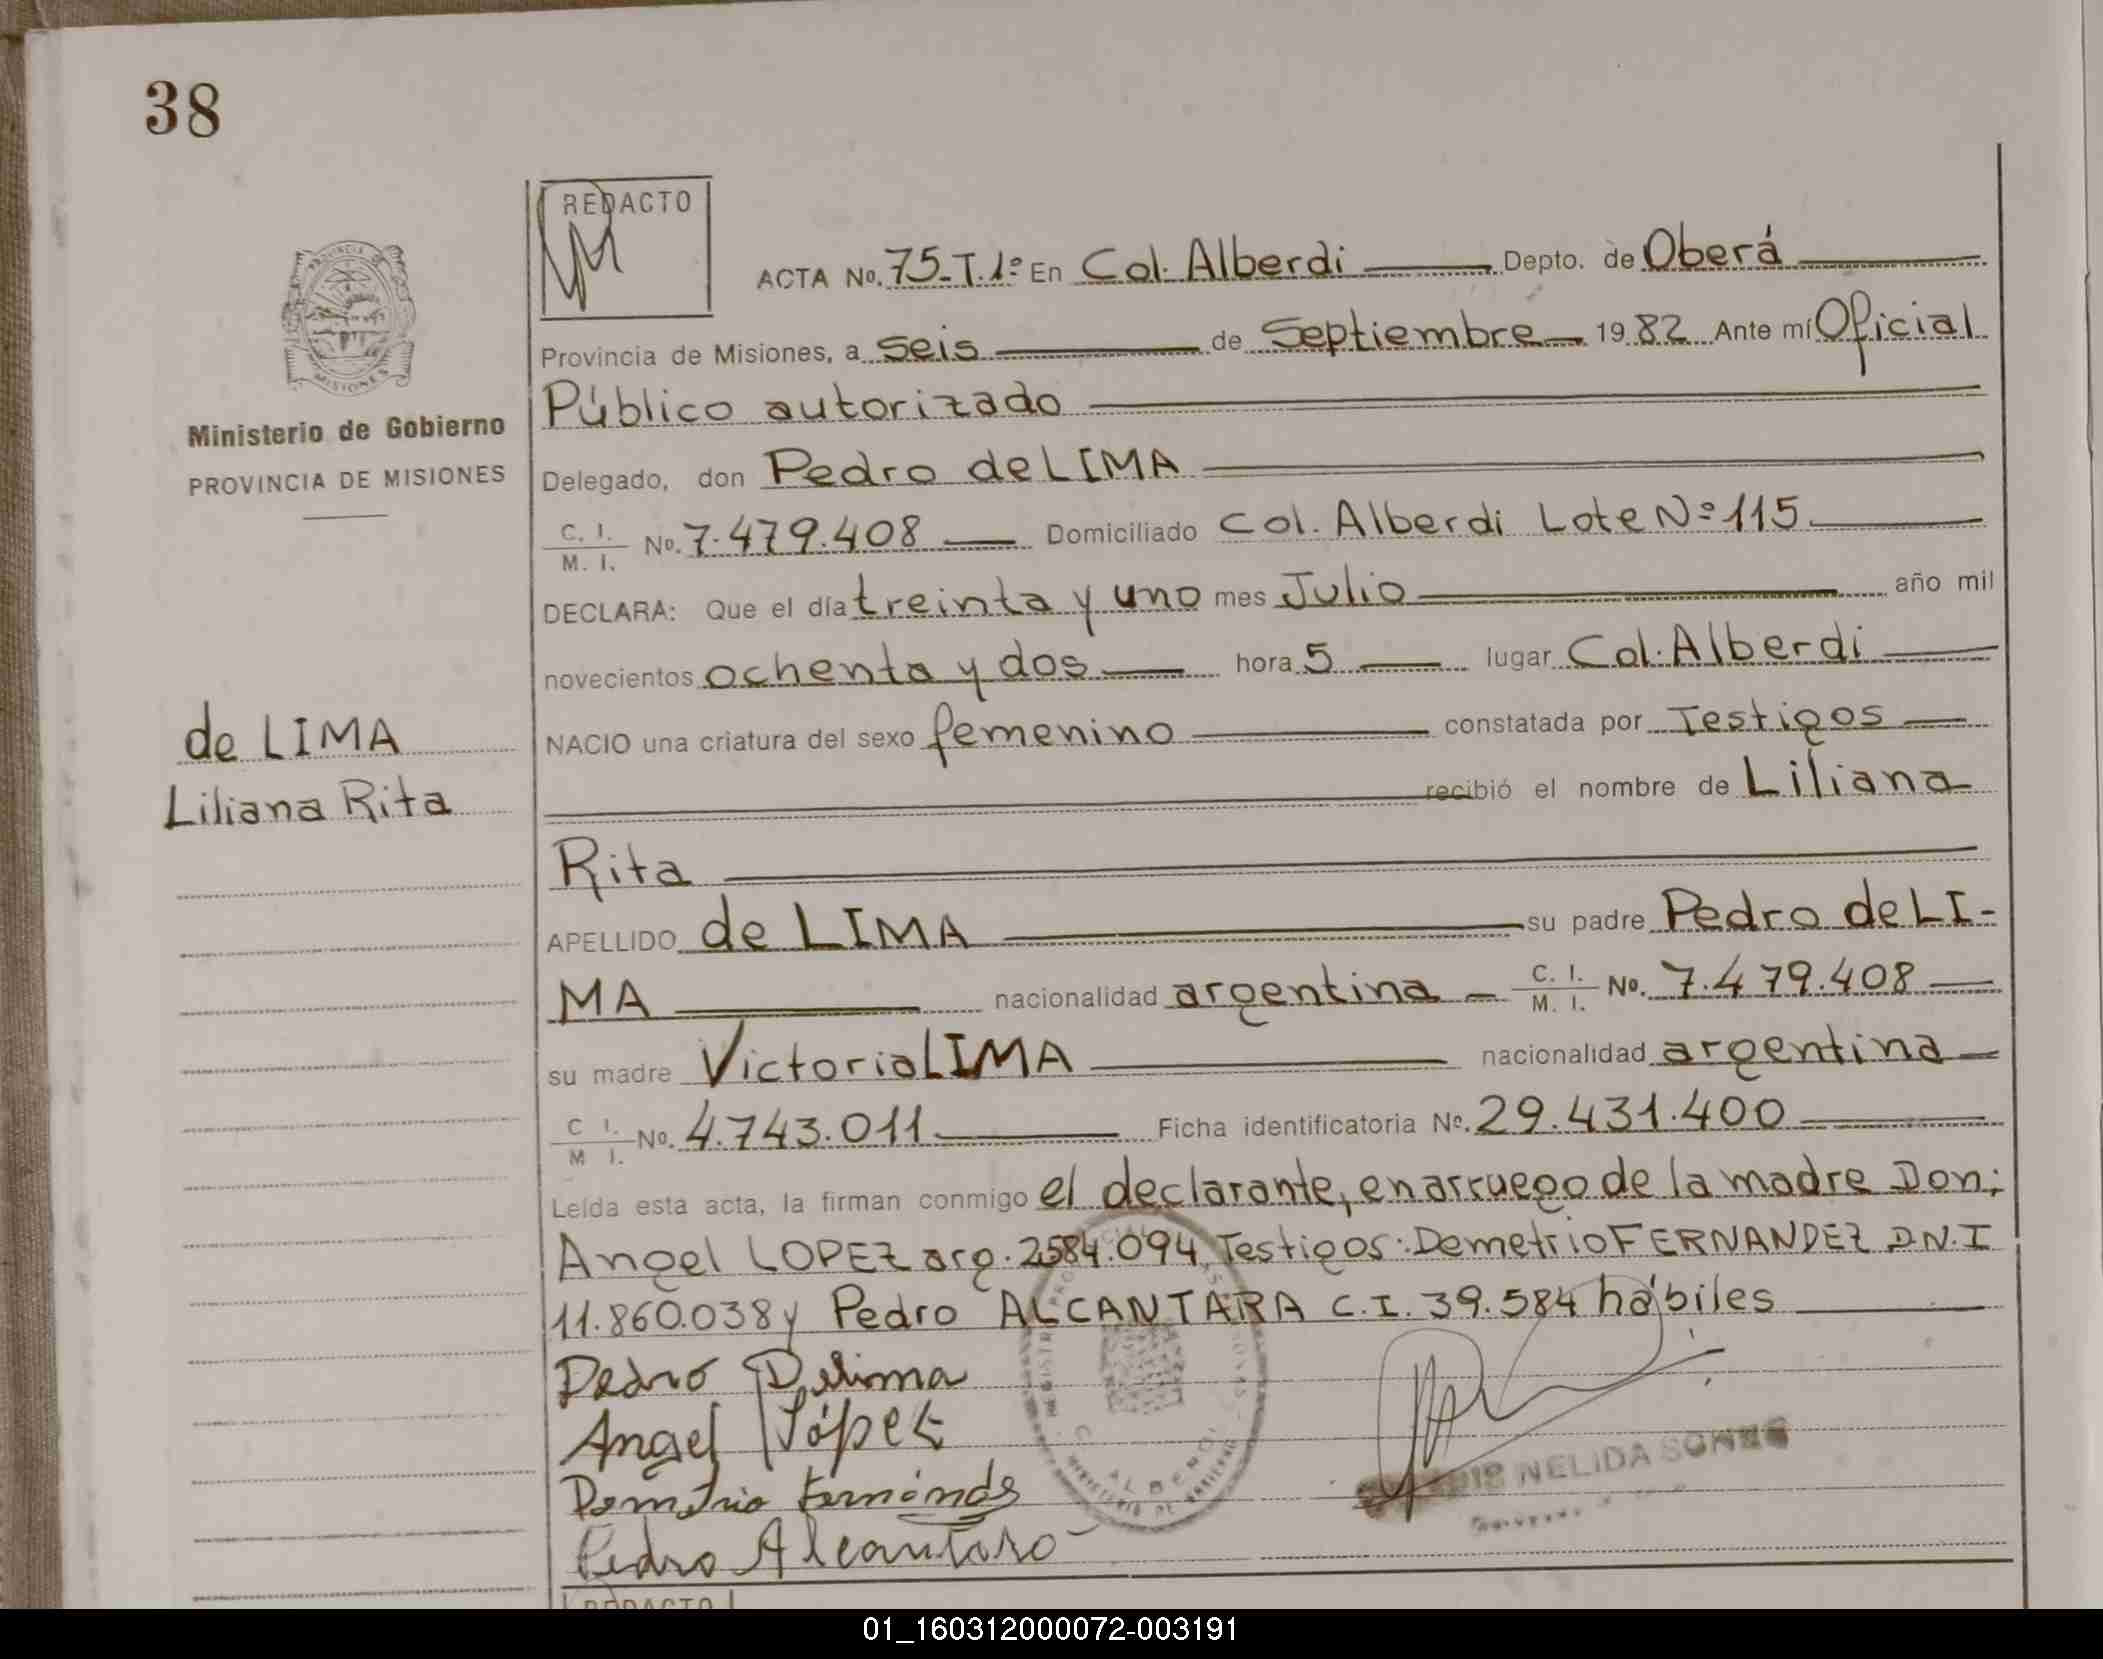 38
REDACTO
ACTA No. 75-T.1º En Col. Alberdi Depto. de Oberá
Provincia de Misiones, a seis de Septiembre 1982 Ante mí Oficial
Público autorizado
Delegado, don Pedro de LIMA
C. I. / M. I. No. 7.479.408 Domiciliado Col. Alberdi Lote Nº 115
DECLARA: Que el día treinta y uno mes Julio año mil
novecientos ochenta y dos hora 5 lugar Col. Alberdi
NACIO una criatura del sexo femenino constatada por Testigos
recibió el nombre de Liliana
Rita
APELLIDO de LIMA su padre Pedro de LI-
MA nacionalidad argentina C. I. / M. I. No. 7.479.408
su madre Victoria LIMA nacionalidad argentina
C I. / M I. No. 4.743.011 Ficha identificatoria Nº. 29.431.400
Leída esta acta, la firman conmigo el declarante, en arruego de la madre Don;
Angel LOPEZ arg. 2584.094 Testigos: Demetrio FERNANDEZ D.N.I
11.860.038 y Pedro ALCANTARA C.I. 39.584 hábiles
Pedro Delima
Angel López
Pedro Alcantaro
NELIDA
PROVINCIA DE
MISIONES
Ministerio de Gobierno
PROVINCIA DE MISIONES
de LIMA
Liliana Rita
REDACTO
01_160312000072-003191